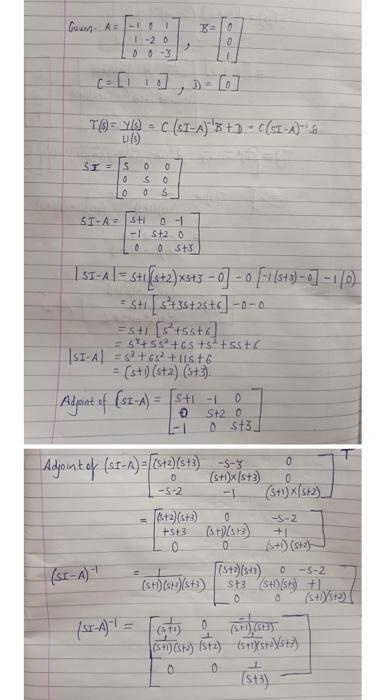 Given. A = [-1 0 1; 1 -2 0; 0 0 -3], B = [0; 0; 1]
C = [1 1 0], D = [0]
T(s) = Y(s)/U(s) = C (SI-A)⁻¹B + D = C(SI-A)⁻¹B
SI = [S 0 0; 0 S 0; 0 0 S]
SI-A = [S+1 0 -1; -1 S+2 0; 0 0 S+3]
|SI-A| = S+1[(S+2)×S+3 - 0] - 0 [-1(S+3) - 0] - 1(0).
= S+1 [S²+3S+2S+6] - 0 - 0
= S+1 [S²+5S+6]
= S³+5S²+6S+S²+5S+6
|SI-A| = S³+6S²+11S+6
= (S+1)(S+2)(S+3).
Adjoint of (SI-A) = [S+1 -1 0; 0 S+2 0; -1 0 S+3]
Adjoint of (SI-A) = [(S+2)(S+3) -S-3 0; 0 (S+1)×(S+3) 0; -S-2 -1 (S+1)×(S+2)]ᵀ
= [(S+2)(S+3) 0 -S-2; +S+3 (S+1)(S+3) +1; 0 0 (S+1)(S+2)]
(SI-A)⁻¹ = 1/(S+1)(S+2)(S+3) [(S+2)(S+3) 0 -S-2; S+3 (S+1)(S+3) +1; 0 0 (S+1)(S+2)]
(SI-A)⁻¹ = [1/(S+1) 0 -1/(S+1)(S+3); 1/(S+1)(S+2) 1/(S+2) 1/(S+1)(S+2)(S+3); 0 0 1/(S+3)]